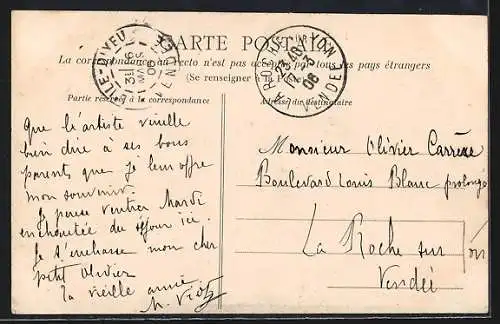 CARTE POSTALE
La correspondance au recto n'est pas acceptée par tous les pays étrangers
(Se renseigner à la Poste)
Partie réservée à la correspondance
Adresse du destinataire
ILE-D'YEU
VENDÉE
LA ROCHE-SUR-YON
VENDÉE
Que l'artiste veuille
bien dire à ses bons
parents que je leur offre
mon souvenir.
Je pense rentrer Mardi
enchantée du séjour ici.
Je t'embrasse mon cher
petit Olivier
ta vieille amie
Monsieur Olivier Carrère
Boulevard Louis Blanc prolongé
La Roche sur Yon
Vendée